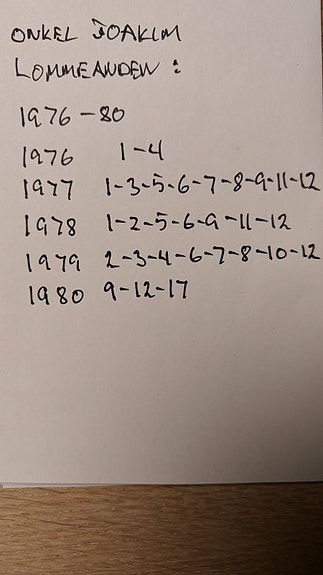 ONKEL JOAKIM
LOMMEANDEN :
1976 - 80
1976 1-4
1977 1-3-5-6-7-8-9-11-12
1978 1-2-5-6-9-11-12
1979 2-3-4-6-7-8-10-12
1980 9-12-17